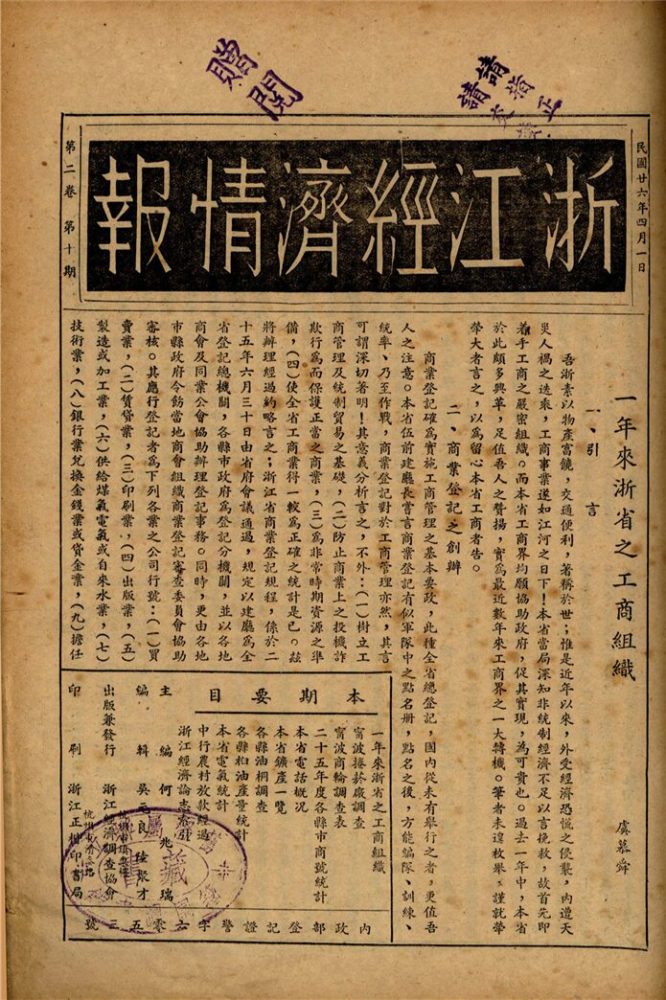 贈閱
請指正
請交換
浙江經濟情報
民國廿六年四月一日
第二卷 第十期
一年來浙省之工商組織
虞慕舜
一、引言
吾浙素以物產富饒，交通便利，著稱於世；惟是近年以來，外受經濟恐慌之侵襲，內遭天
災人禍之迭乘，工商事業遂如江河之日下！本省當局深知非統制經濟不足以言挽救，故首先即
着手工商之嚴密組織。而本省工商界均願協助政府，促其實現，為可貴也。過去一年中，本省
於此頗多興革，足值吾人之聲揚，實為最近數年來工商界之一大轉機。筆者未遑枚舉，謹就犖
犖大者言之，以為留心本省工商者告。
二、商業登記之創辦
商業登記確為實施工商管理之基本要政，此種全省總登記，國內從未有舉行之者，更值吾
人之注意。本省伍前建廳長嘗言商業登記有似軍隊中之點名册，點名之後，方能編隊、訓練、
統率、乃至作戰，商業登記對於工商管理亦然，其言
可謂深切著明！其意義分析言之，不外：（一）樹立工
商管理及統制貿易之基礎，（二）防止商業上之投機詐
欺行為而保護正當之商業，（三）為非常時期資源之準
備，（四）使全省工商業得一較為正確之統計是已。茲
將辦理經過約略言之；浙江省商業登記規程，係於二
十五年六月三十日由省府會議通過，規定以建廳為全
省登記總機關，各縣市政府為登記分機關，並以各地
商會及同業公會協助辦理登記事務。同時，更由各地
市縣政府令飭當地商會組織商業登記審查委員會協助
審核。其應行登記者為下列各業之公司行號：（一）買
賣業，（二）賃貸業，（三）印刷業，（四）出版業，（五）
製造或加工業，（六）供給煤氣電氣或自來水業，（七）
技術業，（八）銀行業兌換金錢業或貸金業，（九）擔任
本期要目
一年來浙省之工商組織
甯波捲菸廠調查
甯波商輪調查表
二十五年度各縣市商號統計
本省電話概況
本省鑛產一覽
各縣油桐調查
各縣柏油產量統計
本省電氣統計
中行農村放款經過
浙江經濟論壇索引
主編 何兆瑞
編輯 吳元良 陸聚才
出版兼發行 浙江經濟調查協會
印刷 浙江正楷印書局
內政部登記證警字六零五三號
藏書